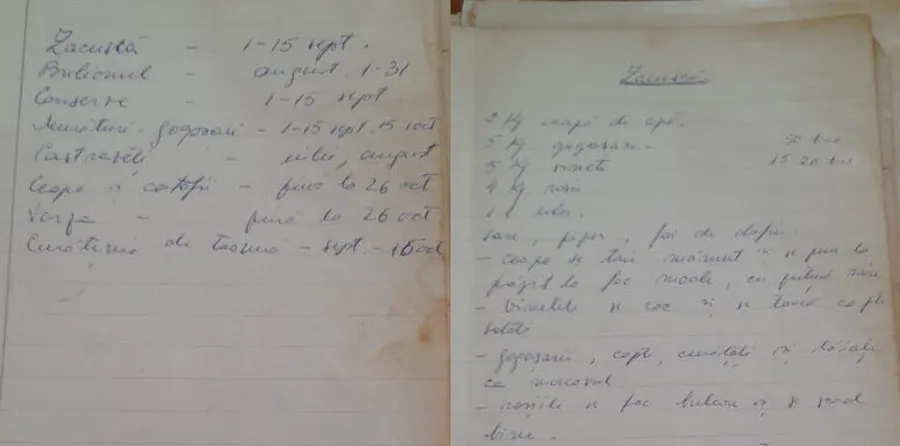 Zacuscă - 1-15 sept.
Bulionul - august 1-31
Conserve - 1-15 sept
Murături - gogoșari - 1-15 sept. 15 oct
Castraveți - iulie, august
Ceapa și cartofii - până la 26 oct
Varza - până la 26 oct
Curățenia de toamnă - sept - 15 oct
Zacuscă
2 kg ceapă de apă.
5 kg gogoșari. 50 buc
5 kg vinete 15 20 buc
4 kg roșii
1 l ulei.
sare, piper, foi de dafin.
- Ceapa se taie mărunt și se pune la
prăjit la foc moale, cu puțină sare
- Vinetele se coc și se toacă ca pt
salată
- gogoșarii, copți, curățați și tăiați
ca
- roșiile se fac bulion și se scad
bine.